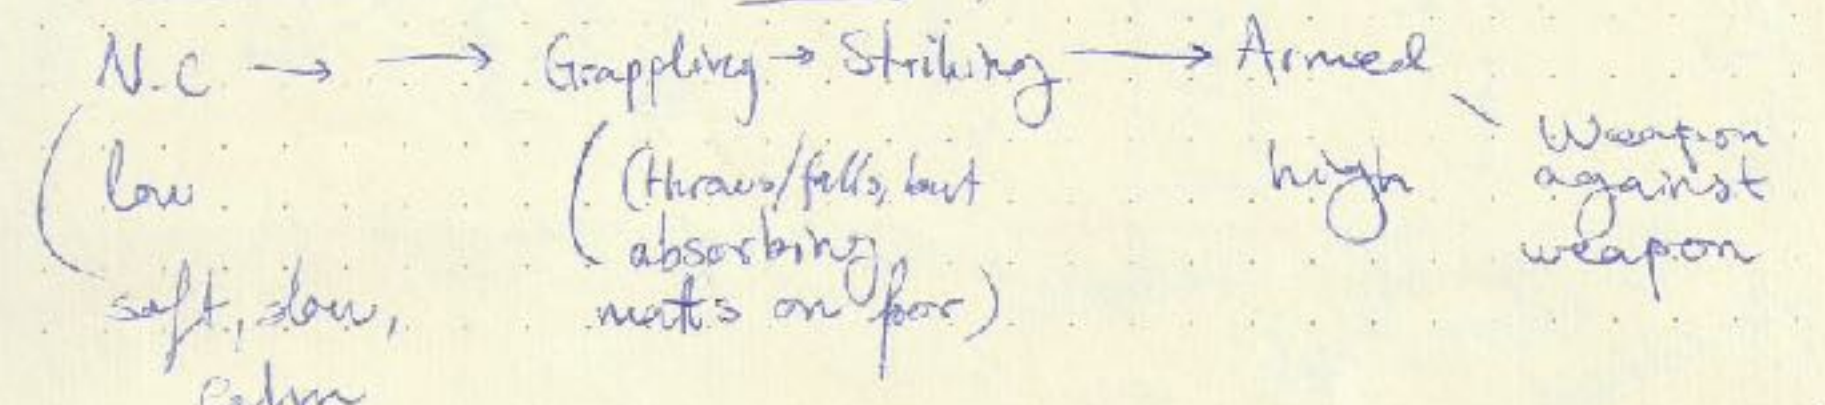 N.C → → Grappling → Striking → Armed
low
soft, slow,
calm
(throws/falls, but
absorbing
mats on floor)
high
Weapon
against
weapon